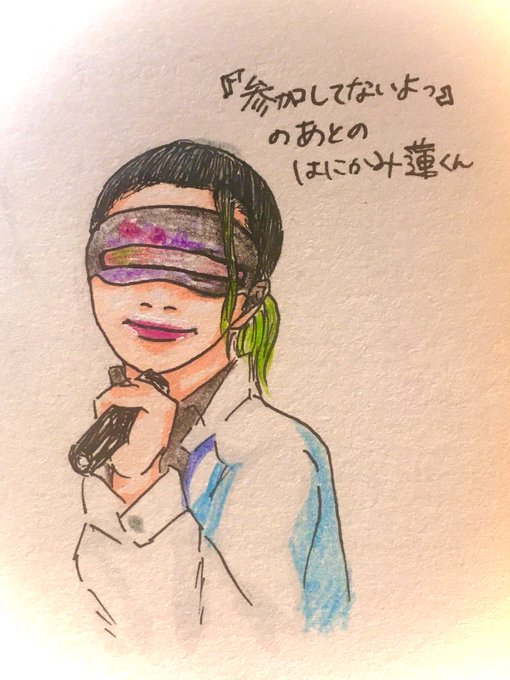 『参加してないよっ』
のあとの
はにかみ蓮くん